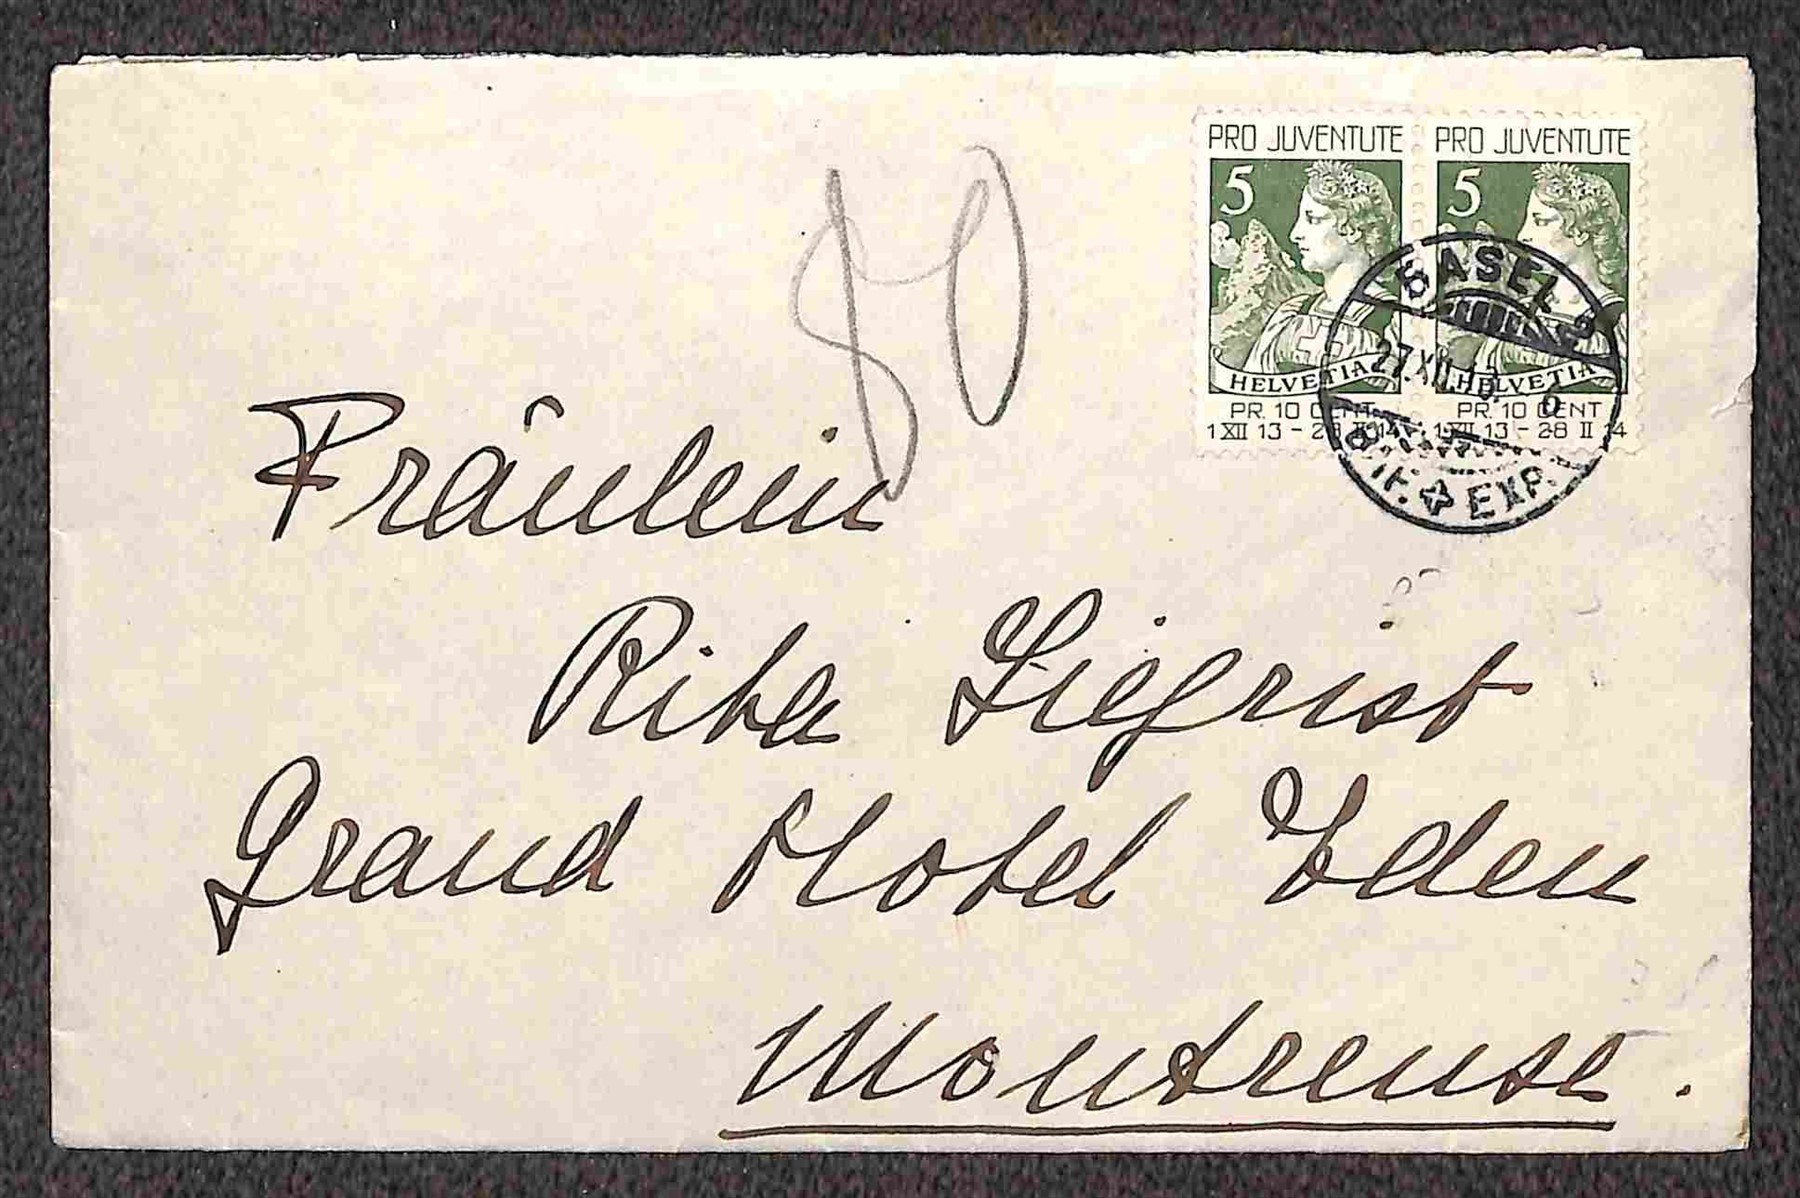 80
PRO JUVENTUTE PRO JUVENTUTE
5 5
HELVETIA HELVETIA
PR. 10 CENT PR. 10 CENT
1 XII 13 – 28 II 14 1 XII 13 – 28 II 14
BASEL 2
27.XII.13. 6
BRIF. EXP.
Fräulein
Rita Siegrist
Grand Hotel Eden
Montreuse.